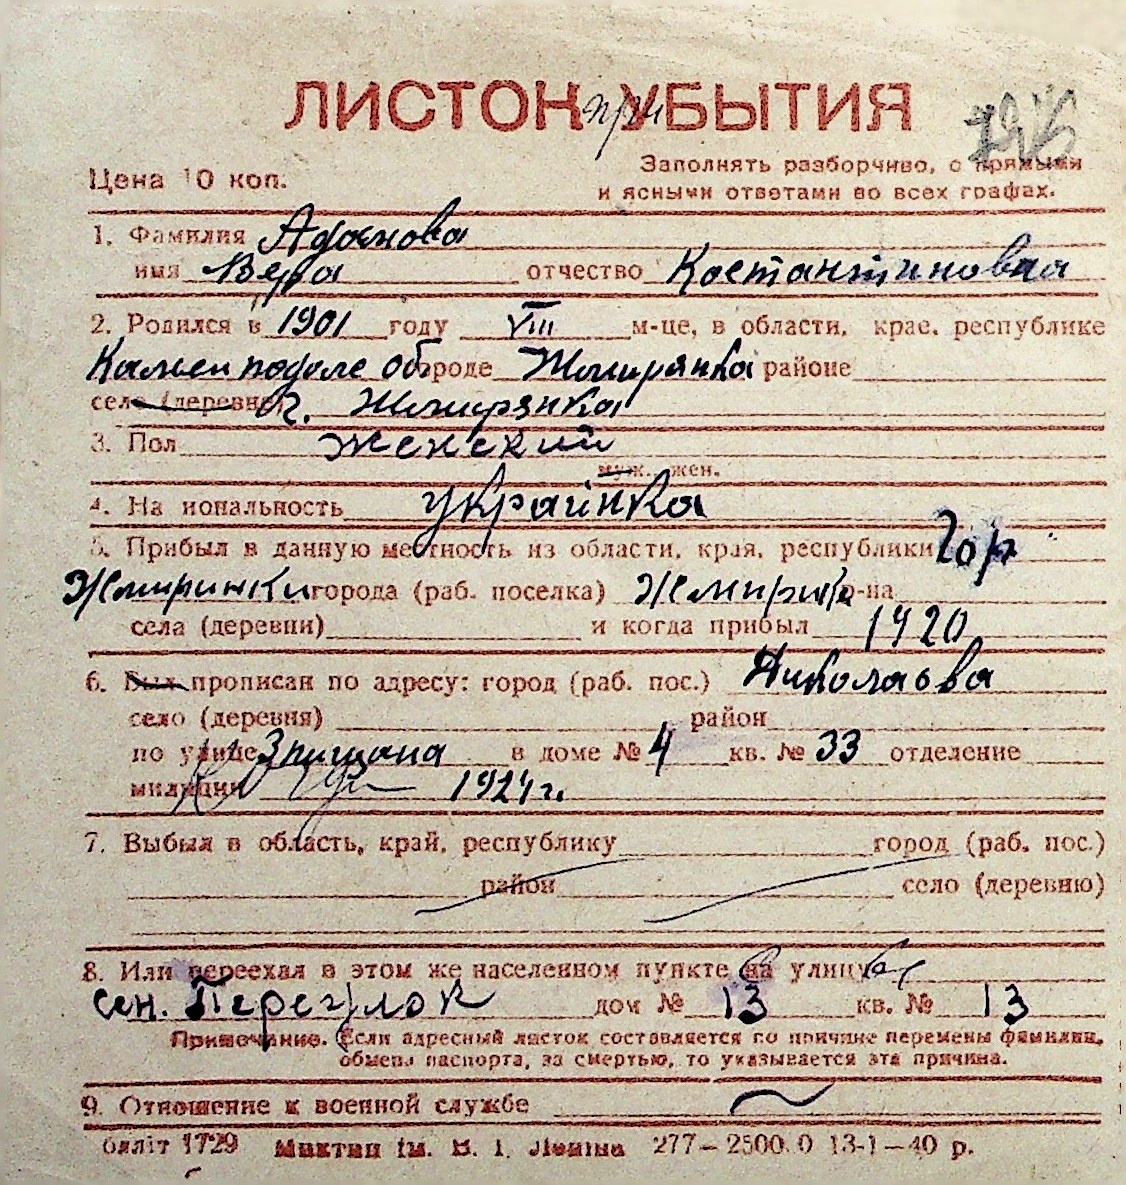 ЛИСТОК при УБЫТИЯ
Цена 10 коп.
Заполнять разборчиво, с прямыми
и ясными ответами во всех графах.
1. Фамилия Адамова
имя Вера отчество Костантиновна
2. Родился в 1901 году VIII м-це, в области, крае, республике
Камен подоле об городе Жмирянка районе
село (деревне) г. Жмирянка
3. Пол женский
муж. жен.
4. На иональность украінка
5. Прибыл в данную местность из области, края, республики гор
Жмиринки города (раб. поселка) р-на
села (деревни) и когда прибыл 1920
6. Был прописан по адресу: город (раб. пос.) Николаева
село (деревня) район
по улице в доме № 4 кв. № 33 отделение
милиции 1924 г.
7. Выбыл в область, край, республику город (раб. пос.)
район село (деревню)
8. Или переехал в этом же населенном пункте на улицу
сен. Переулок дом № 13 кв. № 13
Примечание. Если адресный листок составляется по причине перемены фамилии,
обмена паспорта, за смертью, то указывается эта причина.
9. Отношение к военной службе
1729 ім. В. І. Леніна 277—2500.0 13-1—40 р.